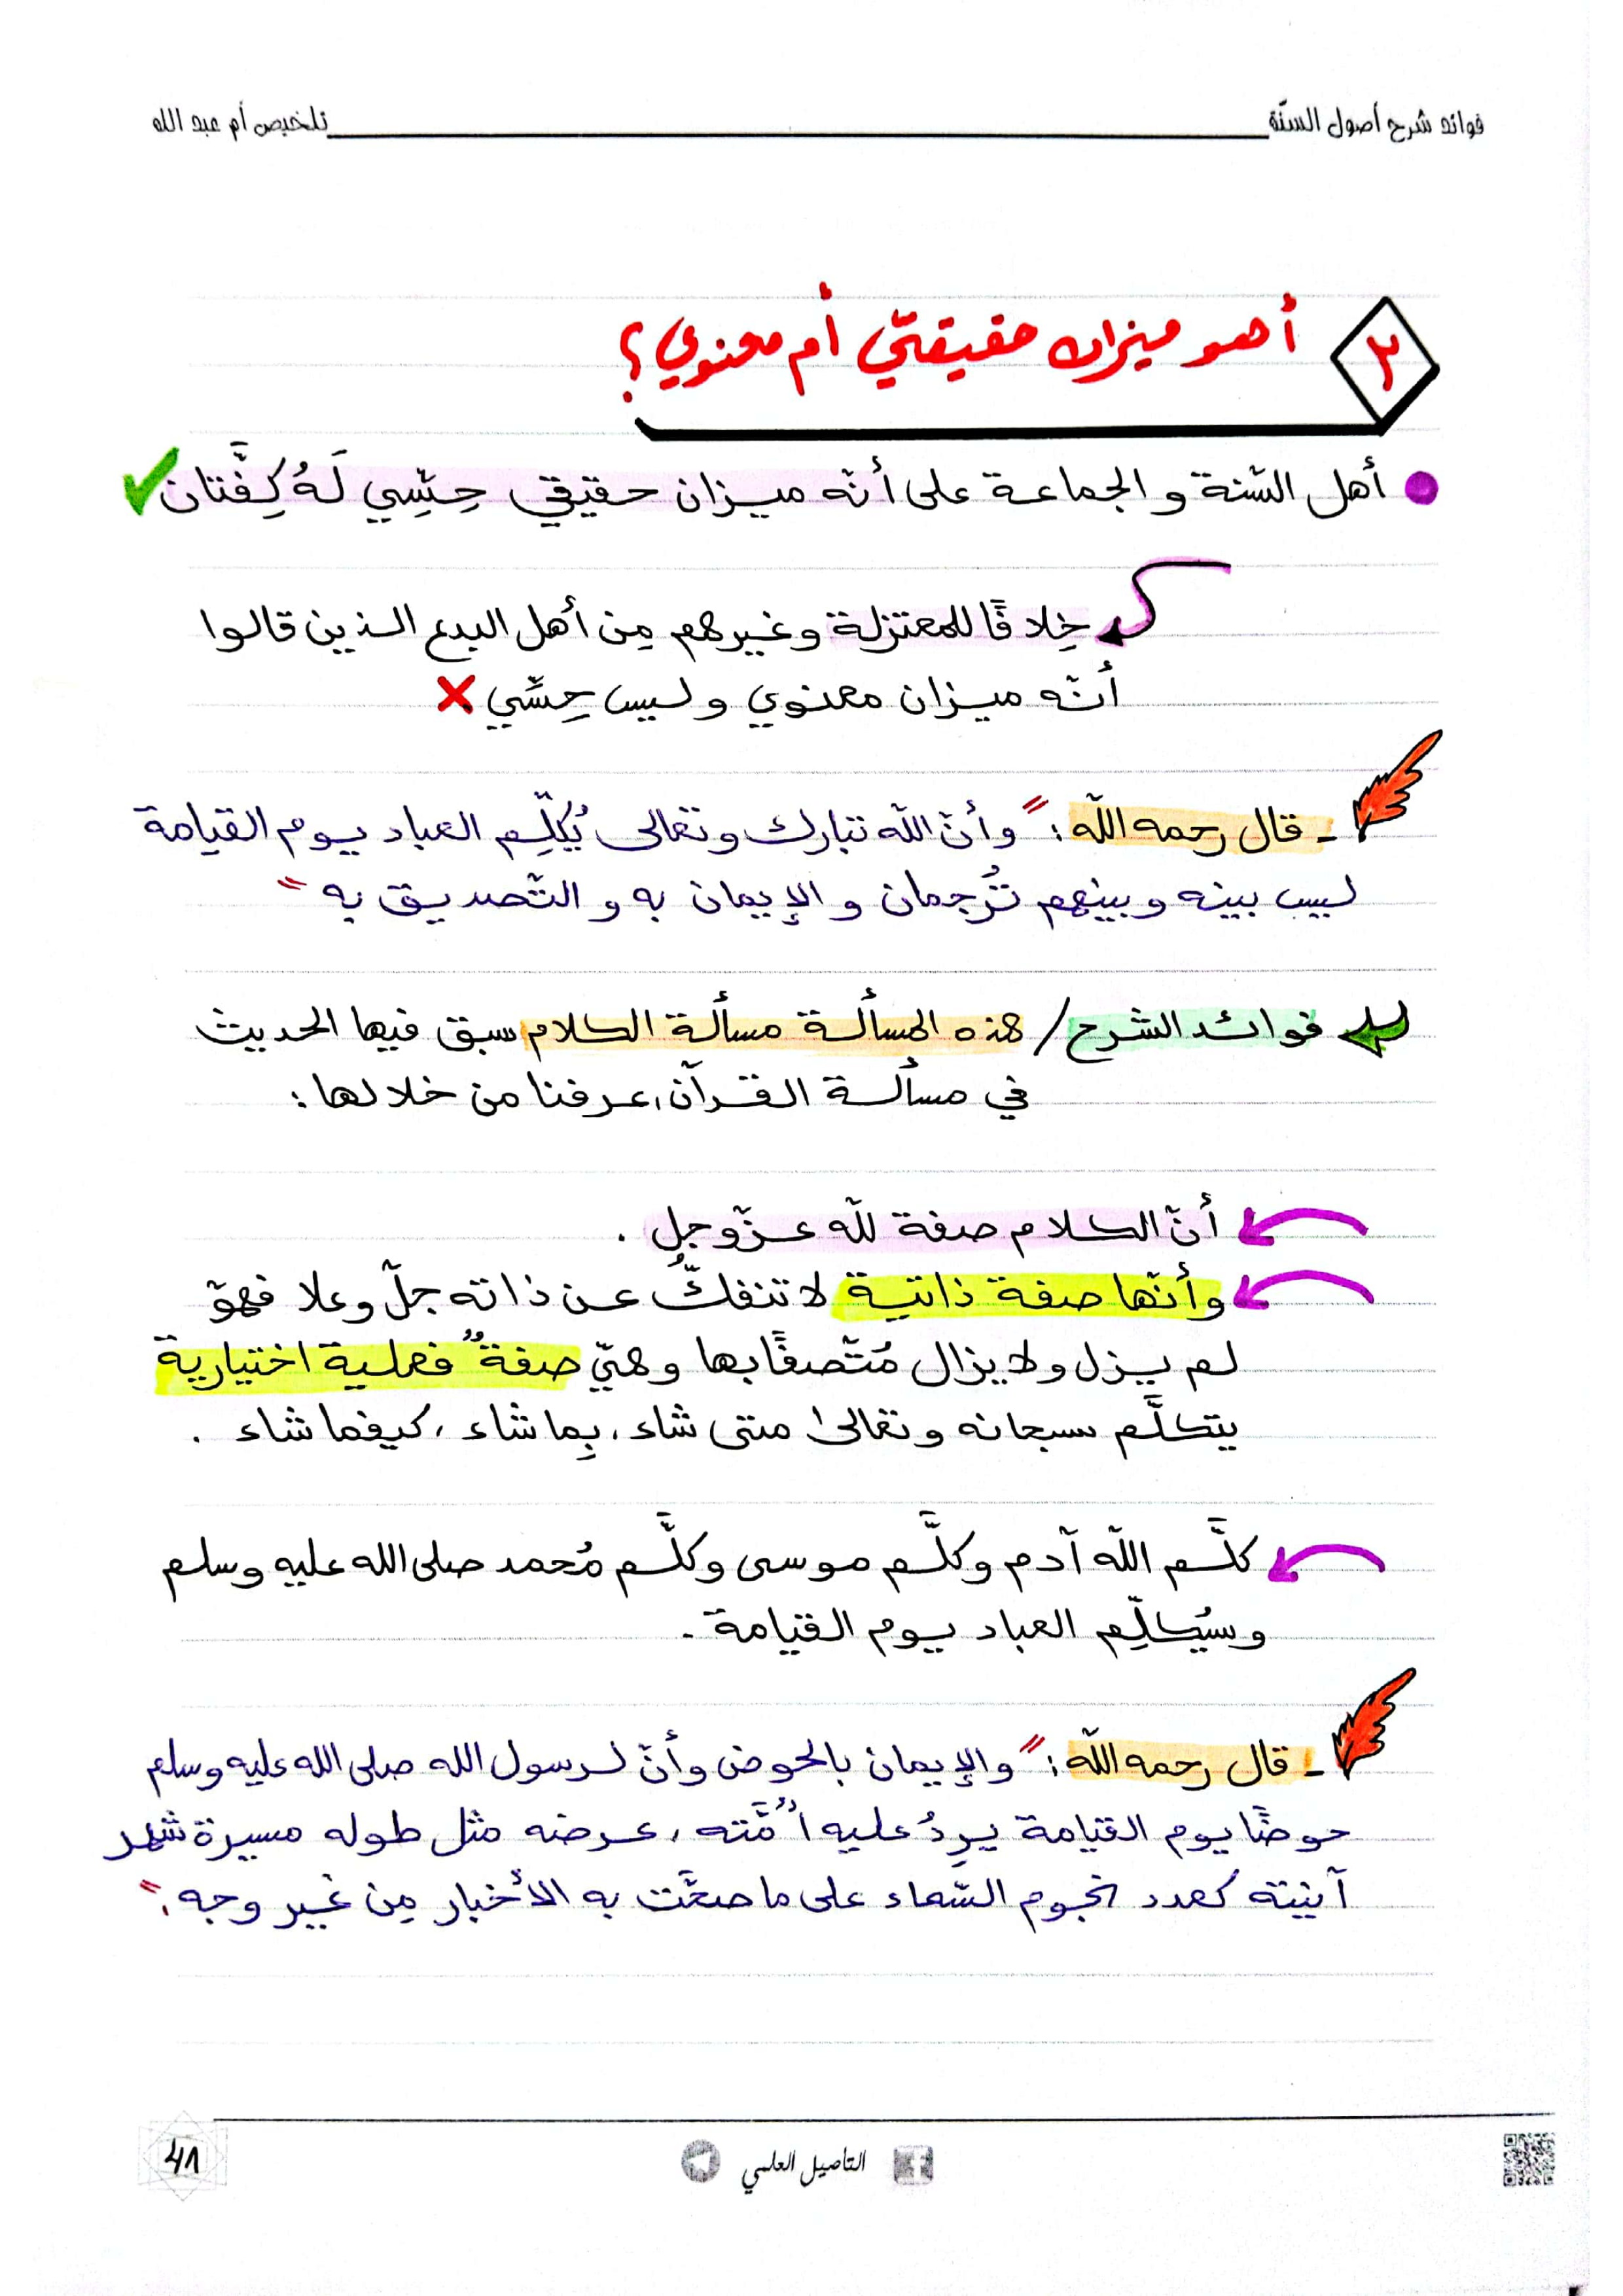 فوائد شرح أصول السنّة تلخيص أم عبد الله
٢ أهو ميزان حقيقيّ أم معنوي؟
أهل السّنة والجماعة على أنّه ميزان حقيقي حِسِّي لَهُ كِفَّتان
خِلافًا للمعتزلة وغيرهم مِن أهل البدع الذين قالوا
أنّه ميزان معنوي وليس حِسِّي
ـ قال رحمه اللّه: "وأنّ اللّه تبارك وتعالى يُكلِّم العباد يوم القيامة
ليس بينه وبينهم تُرجمان والإيمان به والتّصديق به"
فوائد الشرح/ هذه المسألة مسألة الكلام سبق فيها الحديث
في مسألة القرآن، عرفنا من خلالها:
أنّ الكلام صفة للّه عزّوجل.
وأنّها صفة ذاتية لا تنفكُّ عن ذاته جلّ وعلا فهوّ
لم يزل ولا يزال مُتّصفًا بها وهيّ صفةٌ فعلية اختيارية
يتكلَّم سبحانه وتعالى متى شاء، بِما شاء، كيفما شاء.
كلَّم اللّه آدم وكلَّم موسى وكلَّم مُحمد صلى الله عليه وسلم
وسيُكلِّم العباد يوم القيامة.
ـ قال رحمه اللّه: "والإيمان بالحوض وأنّ لرسول الله صلى الله عليه وسلم
حوضًا يوم القيامة يرِدُ عليه أُمَّته، عرضه مثل طوله مسيرة شهر
آنيته كعدد نجوم السّماء على ما صحَّت به الأخبار مِن غير وجه."
التأصيل العلمي
٤٨